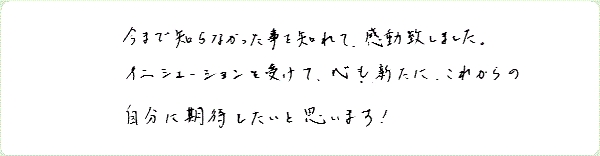 今まで知らなかった事を知れて、感動致しました。
イニシエーションを受けて、心も新たに、これからの
自分に期待したいと思います!